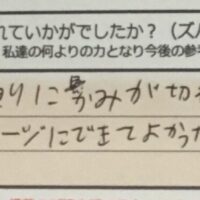 れていかがでしたか？（ズバ
私達の何よりの力となり今後の参考
りに髪みが切
ージにできてよかった